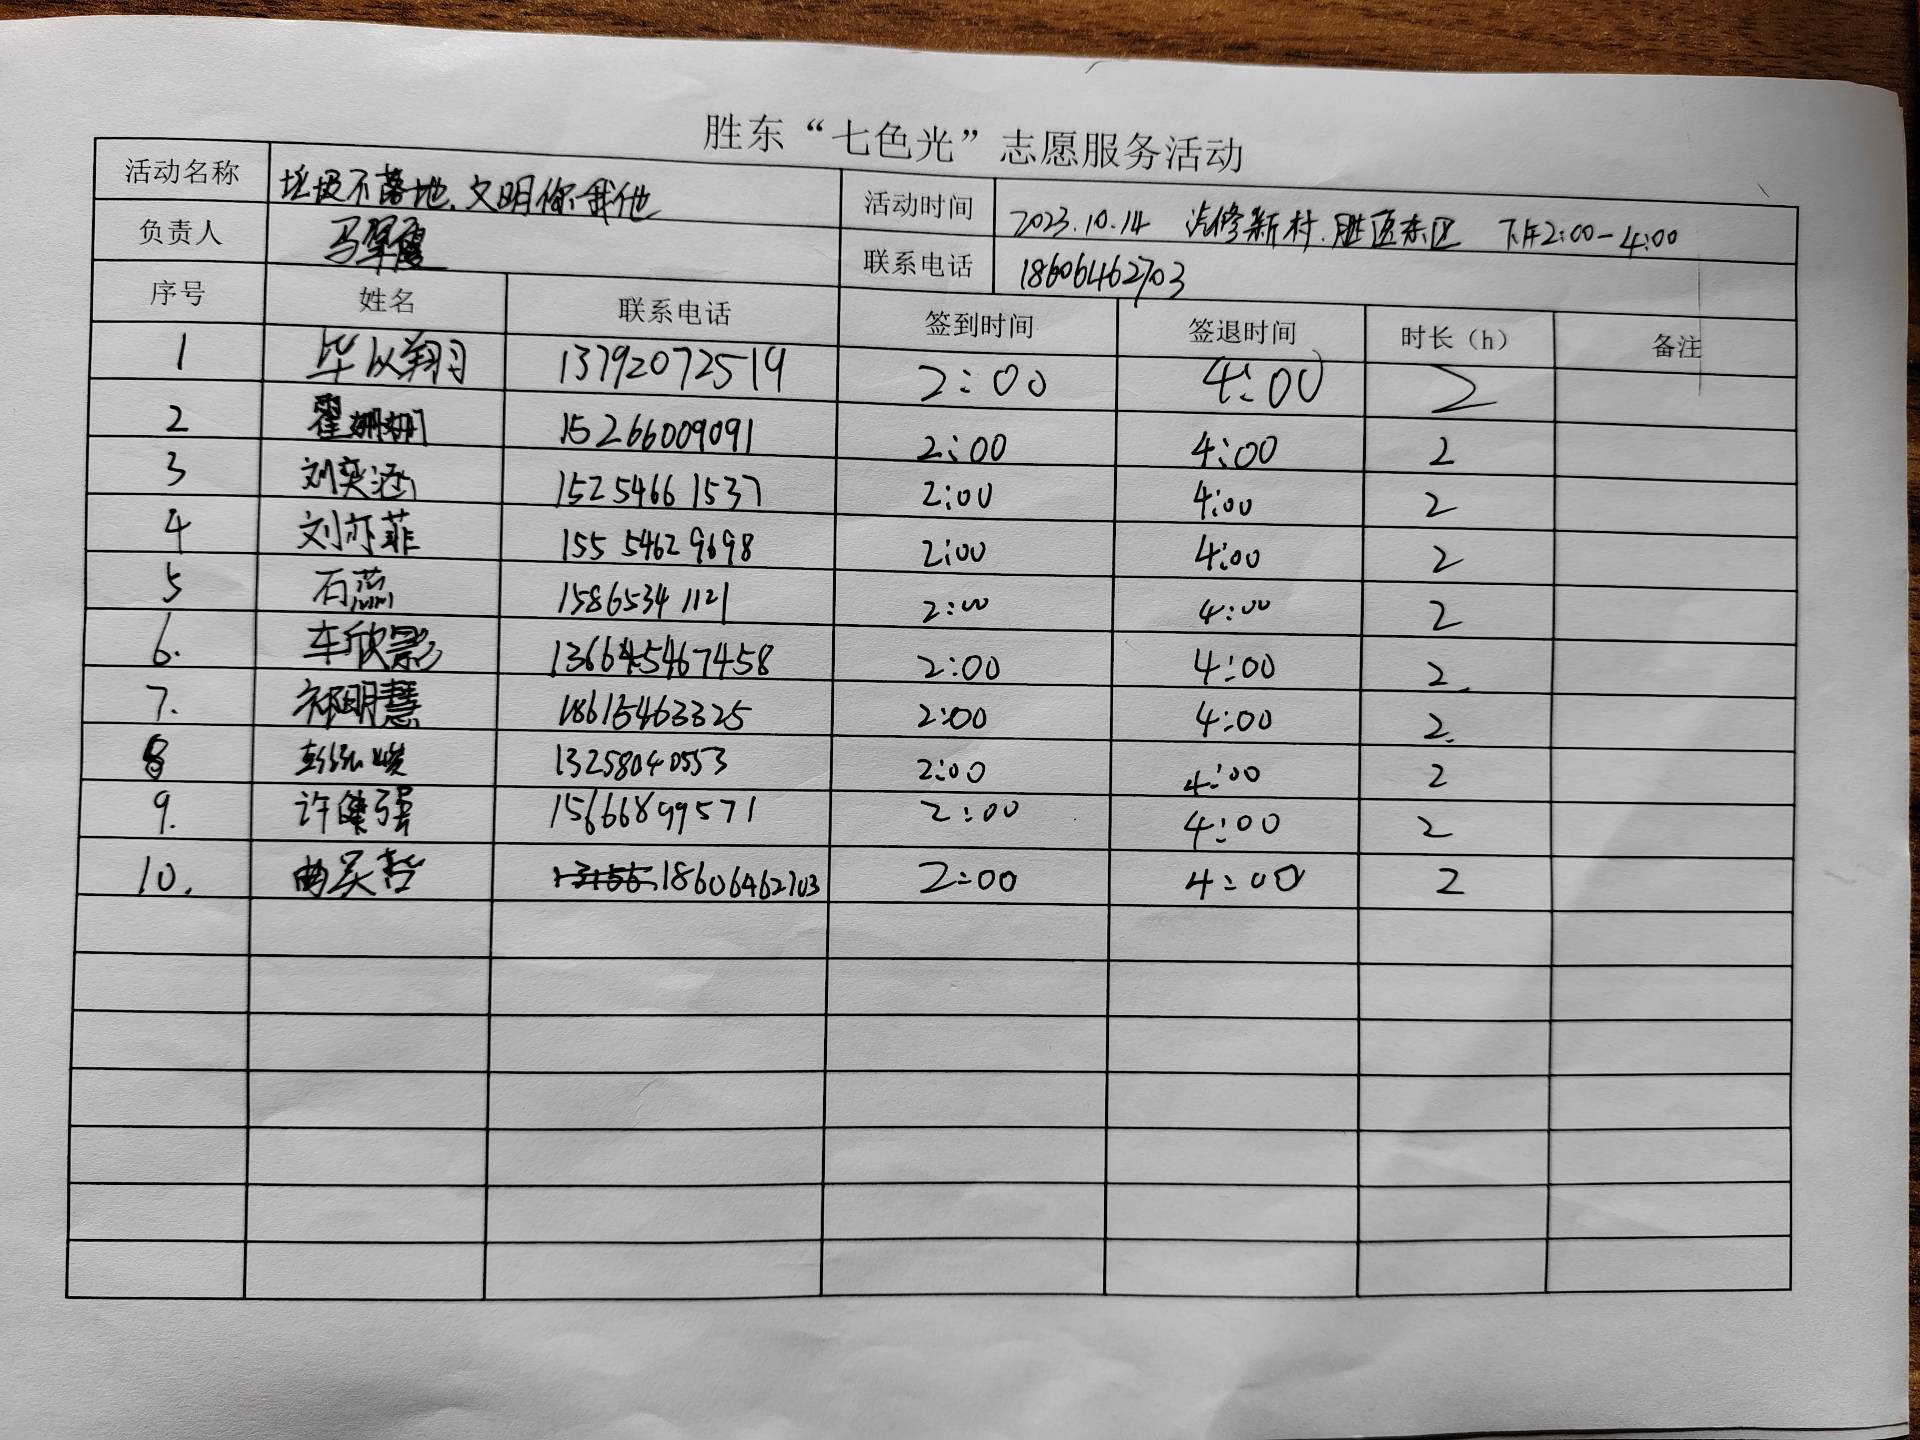 胜东“七色光”志愿服务活动
活动名称 垃圾不落地.文明你我他 活动时间 2023.10.14 汽修新村.胜医东区 下午2:00-4:00
负责人 马翠霞 联系电话 18606462703
序号 姓名 联系电话 签到时间 签退时间 时长（h） 备注
1 毕以翔 13792072519 2:00 4:00 2
2 翟姗姗 15266009091 2:00 4:00 2
3 刘奕涵 15254661537 2:00 4:00 2
4 刘亦菲 15554629698 2:00 4:00 2
5 石蕊 15865341121 2:00 4:00 2
6. 车欣影 2:00 4:00 2.
7. 祁明慧 18615463325 2:00 4:00 2.
8 13258040553 2:00 4:00 2
9. 许健强 15666899571 2:00 4:00 2
10. 曲昊哲 18606462703 2:00 4:00 2